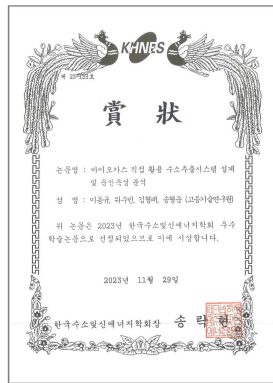 KHNES
제 23-133호
賞 狀
논문명 : 바이오가스 직접 활용 수소추출시스템 설계
및 운전특성 분석
성 명 : 이동규, 위수빈, 김형태, 송형운 (고등기술연구원)
위 논문은 2023년 한국수소및신에너지학회 우수
학술논문으로 선정되었으므로 이에 시상합니다.
2023년 11월 29일
한국수소및신에너지학회장 송 락 현